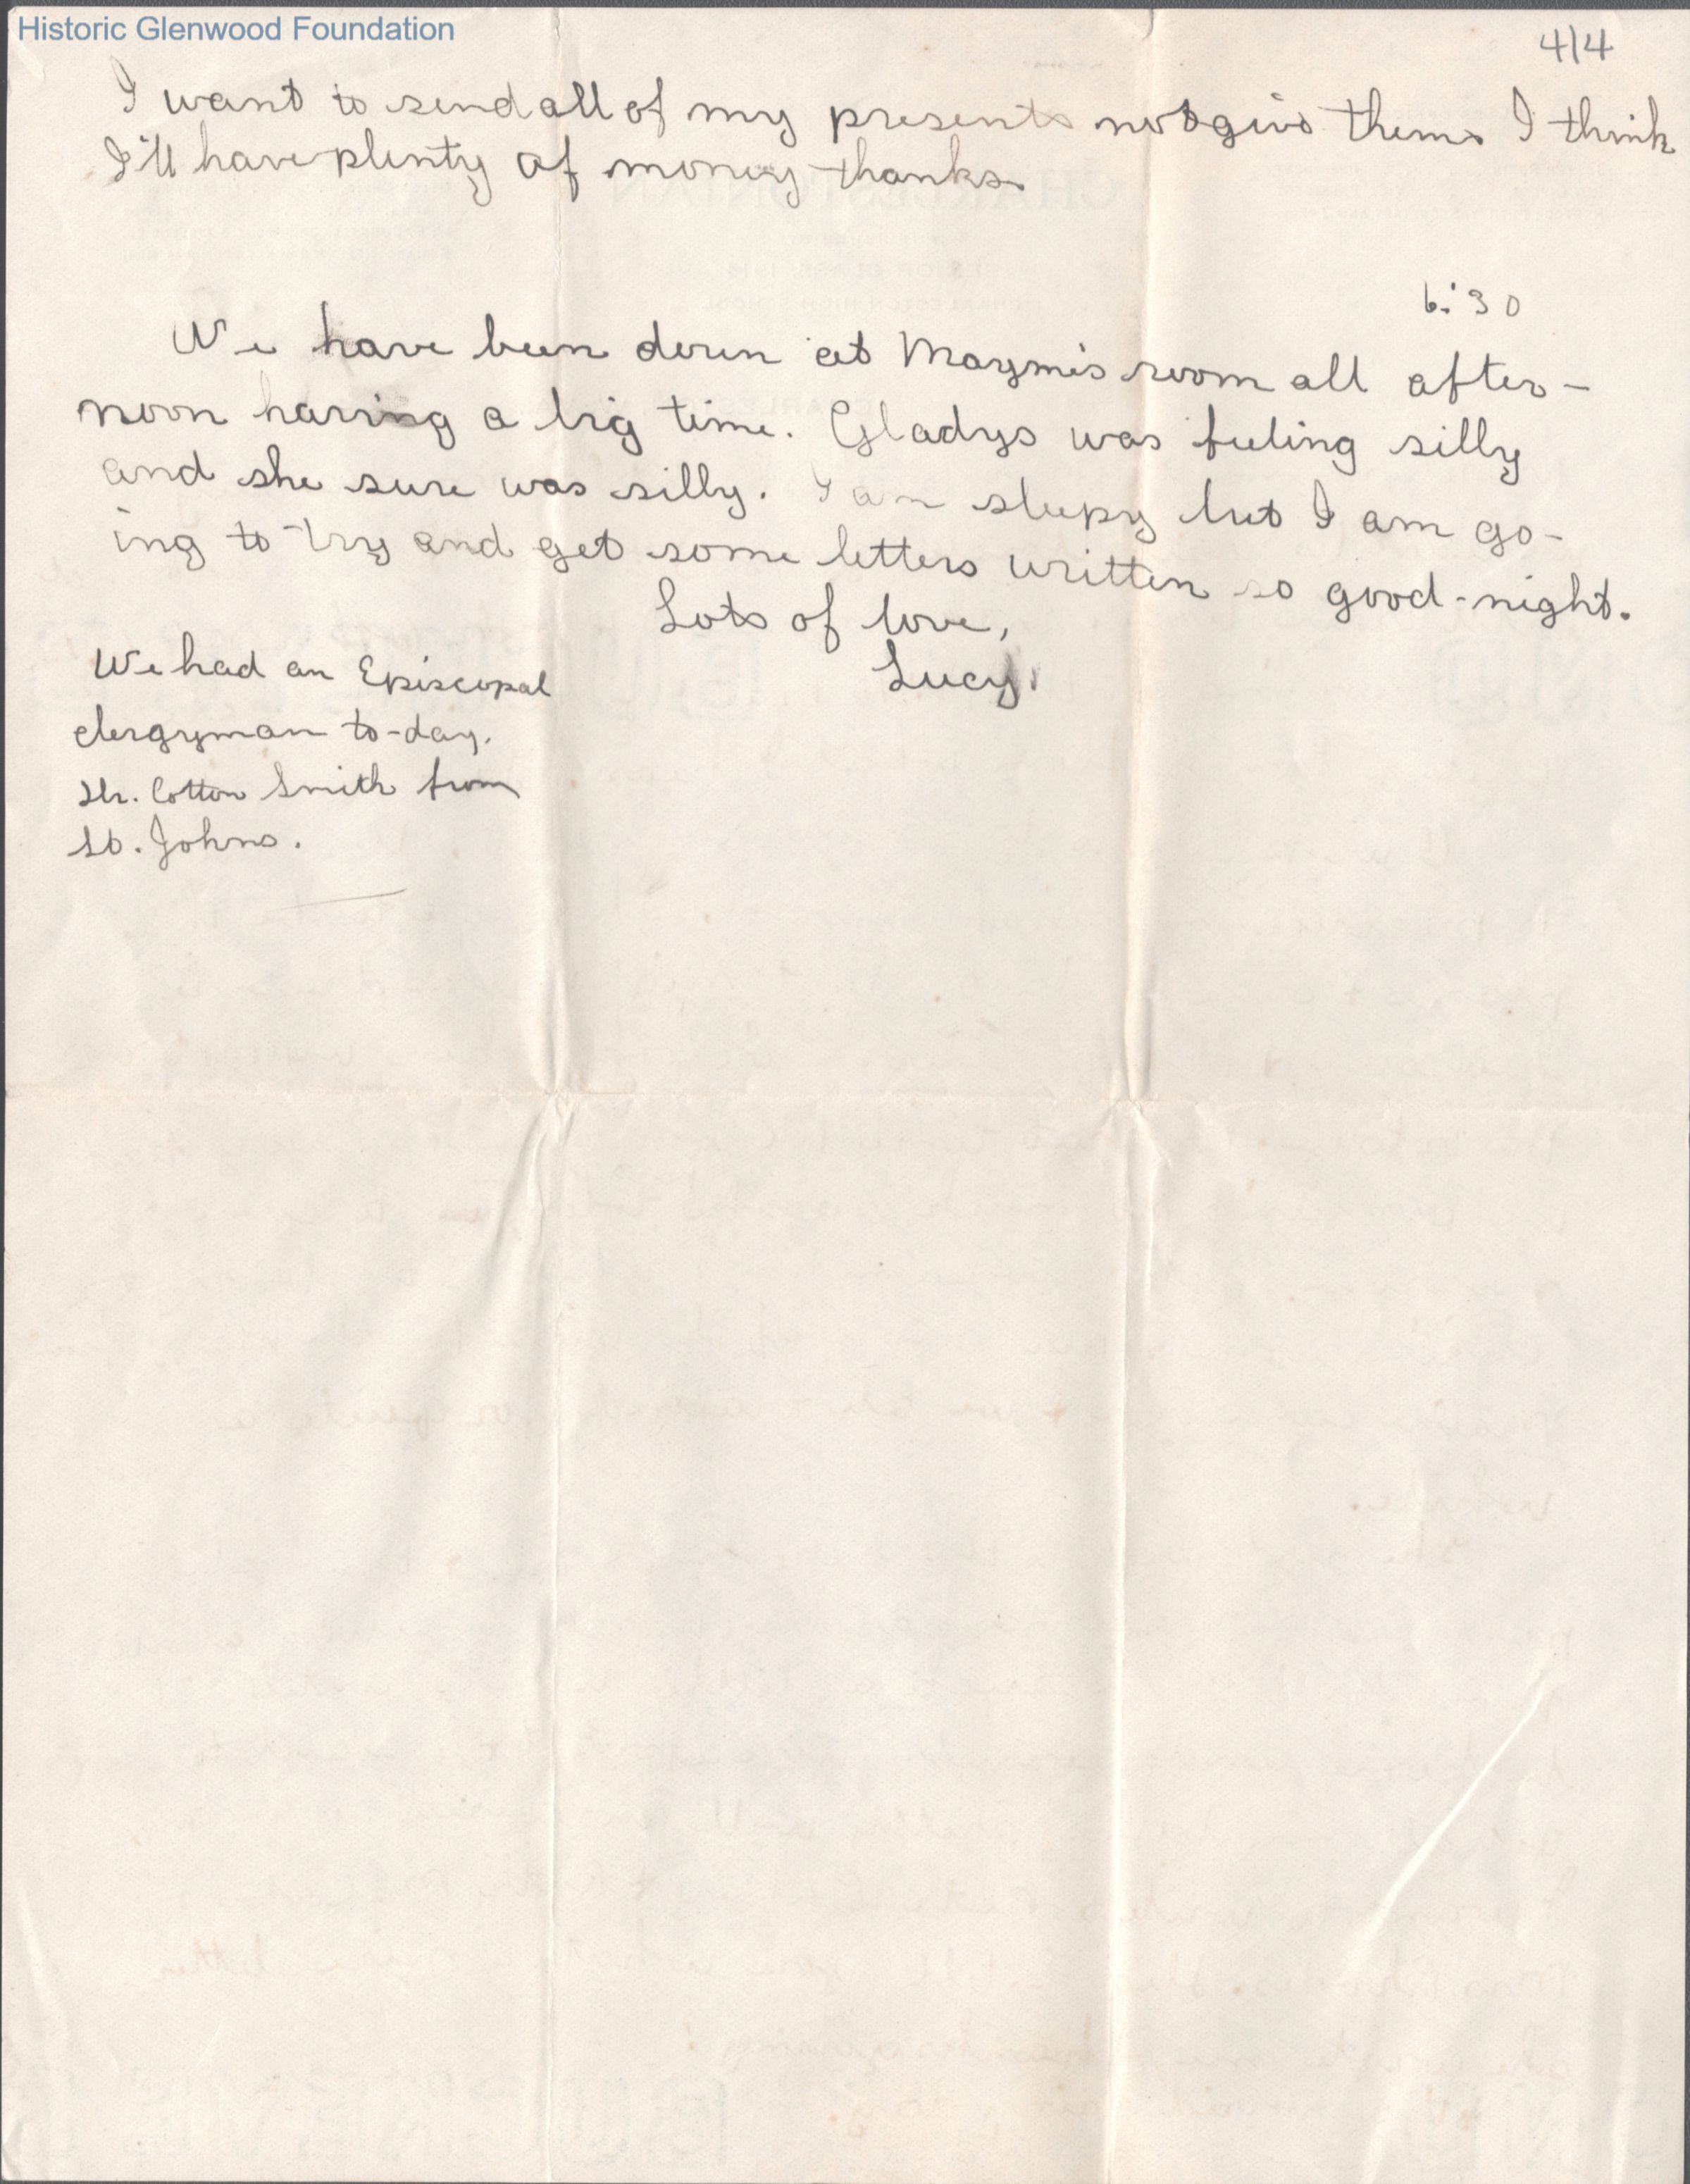 Historic Glenwood Foundation
4/4
I want to send all of my presents not give them. I think
I'll have plenty of money thanks.
6:30
We have been down at Mayme's room all after-
noon having a big time. Gladys was feeling silly
and she sure was silly. I am sleepy but I am go-
ing to try and get some letters written so good-night.
Lots of love,
Lucy.
We had an Episcopal
clergyman to-day.
Mr. Cotton Smith from
St. Johns.